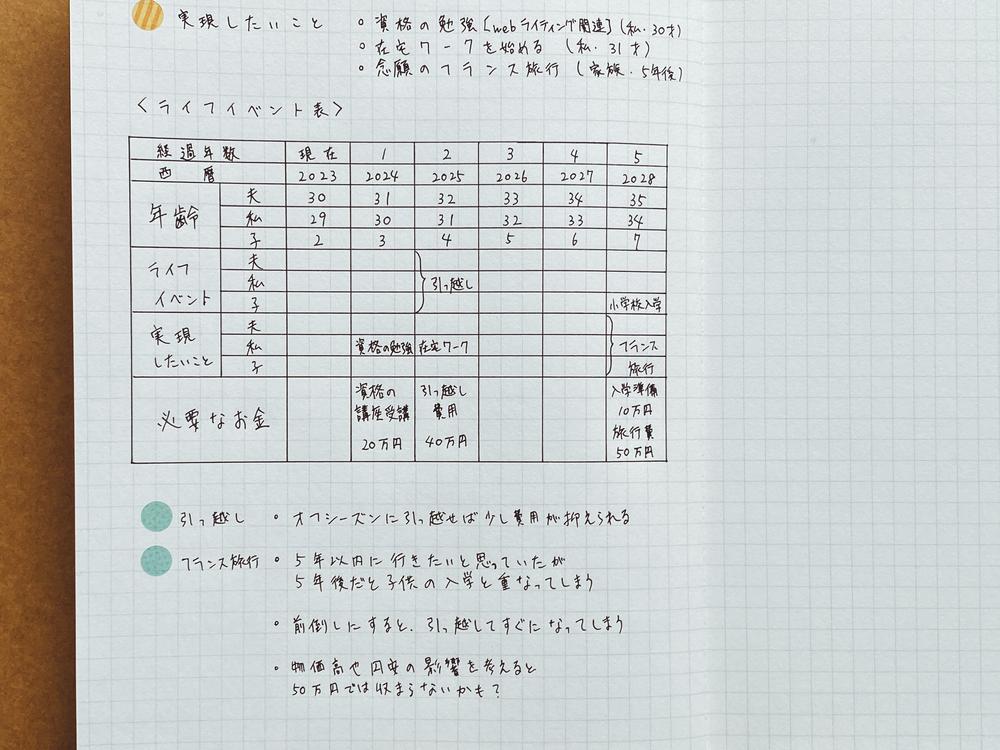 実現したいこと
・資格の勉強［webライティング関連］（私・30才）
・在宅ワークを始める（私・31才）
・念願のフランス旅行（家族・5年後）
〈ライフイベント表〉
経過年数 現在 1 2 3 4 5
西暦 2023 2024 2025 2026 2027 2028
年齢
夫 30 31 32 33 34 35
私 29 30 31 32 33 34
子 2 3 4 5 6 7
ライフ
イベント
夫
私 引っ越し
子 小学校入学
実現
したいこと
夫
私 資格の勉強 在宅ワーク フランス
子 旅行
必要なお金
資格の
講座受講
20万円
引っ越し
費用
40万円
入学準備
10万円
旅行費
50万円
引っ越し ・オフシーズンに引っ越せば少し費用が抑えられる
フランス旅行 ・5年以内に行きたいと思っていたが
5年後だと子供の入学と重なってしまう
・前倒しにすると、引っ越してすぐになってしまう
・物価高や円安の影響を考えると
50万円では収まらないかも？